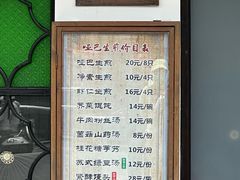 哑巴生煎价目表
哑巴生煎 20元/8只
净素生煎 10元/4只
虾仁生煎 16元/4只
荠菜馄饨 14元/碗
牛肉粉丝汤 14元/碗
菌菇山药汤 8元/份
桂花糖芋艿 10元/份
苏式绿豆汤 12元/份
28元/